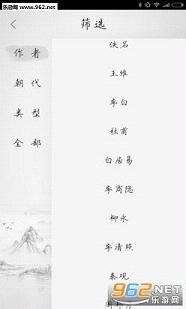 乐游网
www.962.net
筛选
作者
朝代
类型
全部
佚名
王维
李白
杜甫
白居易
李商隐
柳永
李清照
秦观
962.NET
乐游网